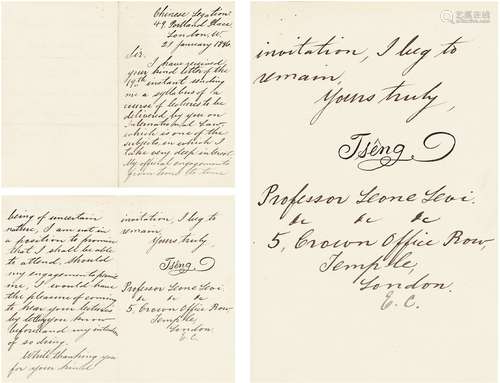 Chinese Legation
49, Portland Place,
London, W.
21 January 1886.
Sir,
I have received
your kind letter of the
19th instant sending
me a syllabus of a
course of lectures to be
delivered by you on
International Law,
which is one of the
subjects in which I
take very deep interest.
My official engagements
from time to time
being of uncertain
nature, I am not in
a position to promise
that I shall be able
to attend. Should
my engagements permit
me, I would have
the pleasure of coming
to hear your lectures
by letting you know
beforehand my intention
of so doing.
While thanking you
for your kind
invitation, I beg to
remain,
Yours truly,
Tsêng
Professor Leone Levi.
&c &c &c
5, Crown Office Row,
Temple,
London.
E.C.
invitation, I beg to
remain,
Yours truly,
Tsêng
Professor Leone Levi.
&c &c &c
5, Crown Office Row,
Temple,
London.
E.C.